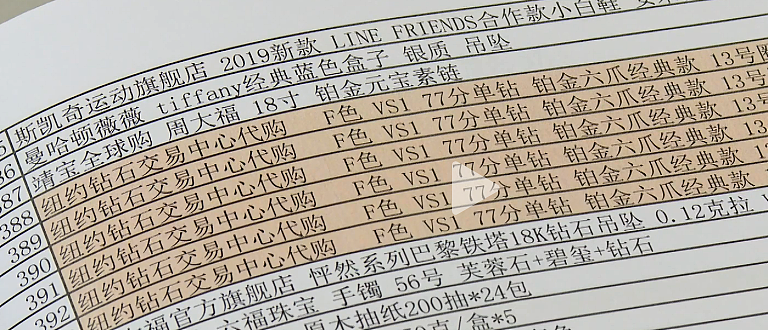 斯凯奇运动旗舰店 2019新款 LINE FRIENDS合作款小白鞋
86 曼哈顿薇薇 tiffany经典蓝色盒子 银质 吊坠
387 靖宝全球购 周大福 18寸 铂金元宝素链
388 纽约钻石交易中心代购 F色 VS1 77分单钻 铂金六爪经典款 13号
389 纽约钻石交易中心代购 F色 VS1 77分单钻 铂金六爪经典款 13号
390 纽约钻石交易中心代购 F色 VS1 77分单钻 铂金六爪经典款 13号
391 纽约钻石交易中心代购 F色 VS1 77分单钻 铂金六爪经典款 13号
392 纽约钻石交易中心代购 F色 VS1 77分单钻 铂金六爪经典款
福官方旗舰店 怦然系列巴黎铁塔18K钻石吊坠 0.12克拉
福珠宝 手镯 56号 芙蓉石+碧玺+钻石
原木抽纸200抽*24包
克/盒*5